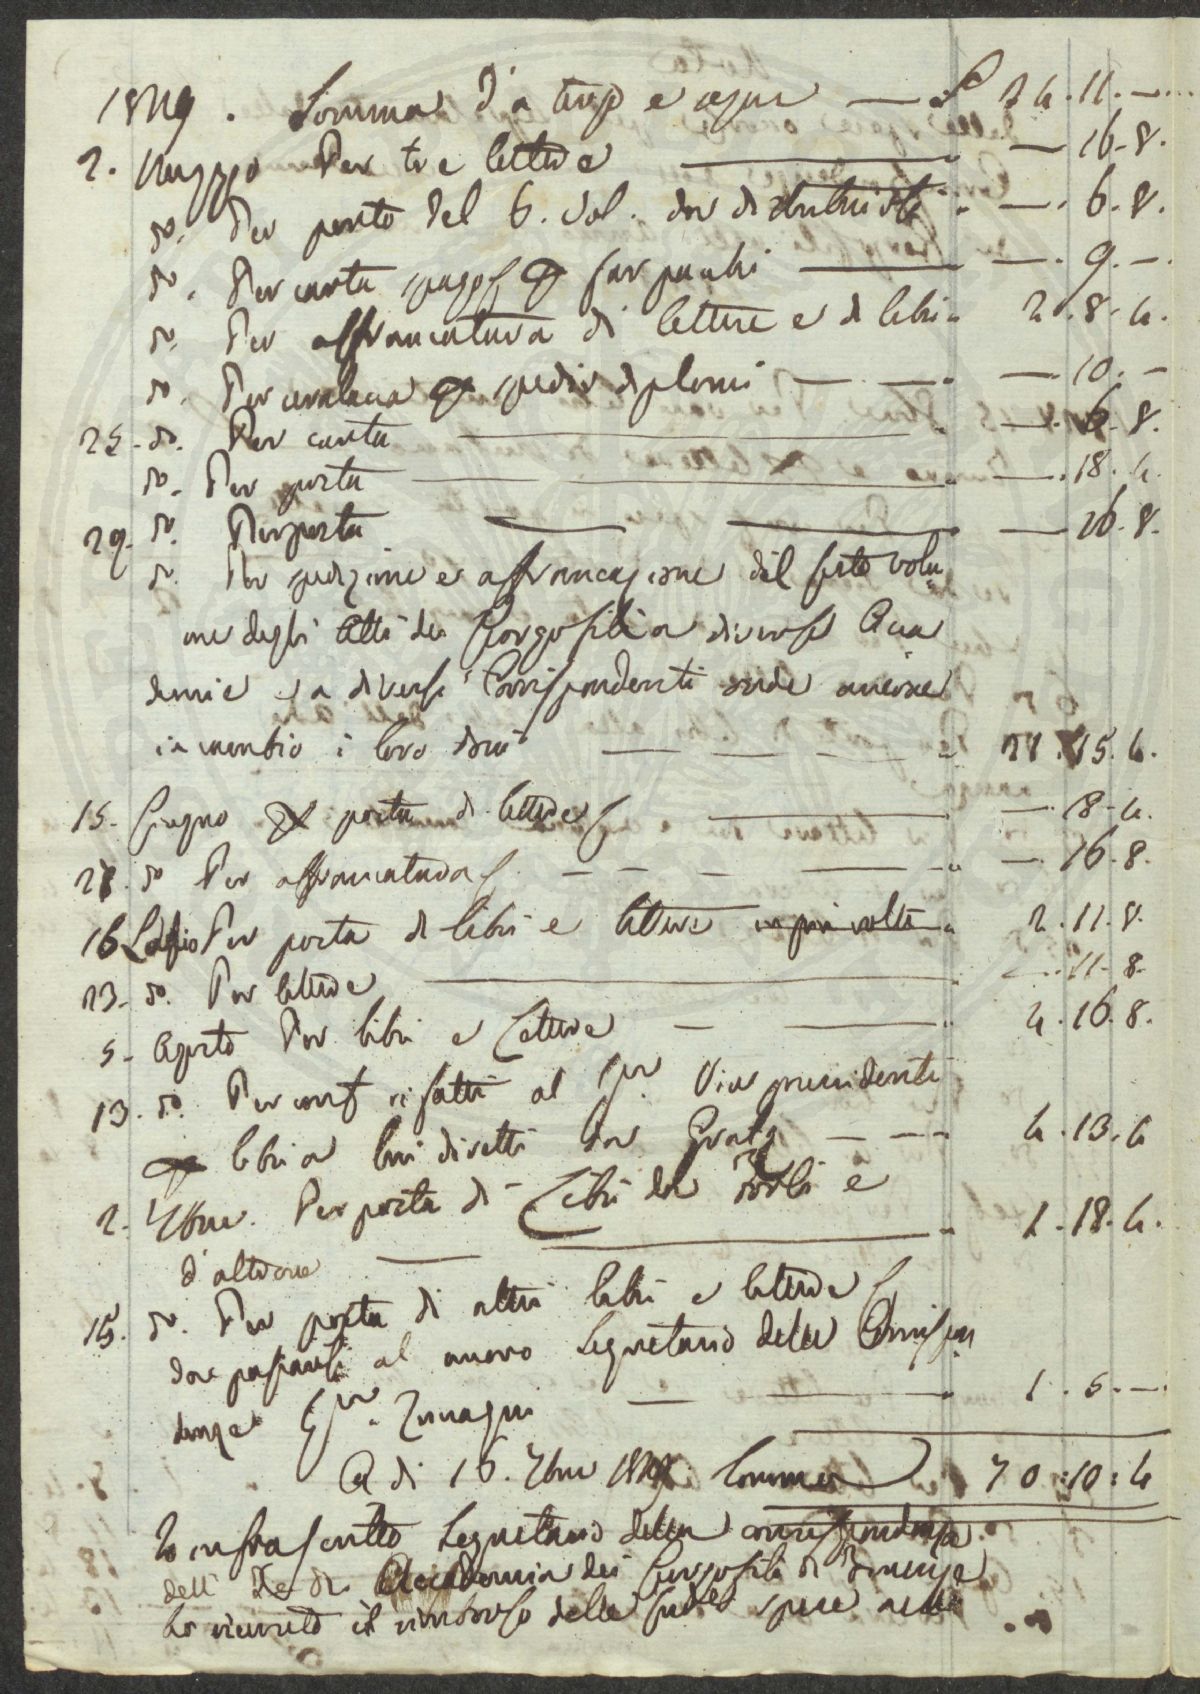 1829. Somma d'a tergo e segue — £ 24.11.—
2. Maggio Per tre lettere — 16.8.
do. Per porto del 6. vol. da distribuirsi — 6.8.
do. Per carta spago p far pacchi — 9.—
do. Per affrancatura di lettere e di libri 2.8.4.
do. Per ceralacca p spedir diplomi — 10.—
25. do. Per carta — 6.8.
do. Per posta — 18.4.
29. do. Per posta — 16.8.
do. Per spedizione e affrancazione del sesto volu
me degli Atti dei Georgofili a diverse Acca
demie e a diversi Corrispondenti onde avere
in cambio i loro doni 21.15.4.
15. Giugno p posta di lettere — 18.4.
28. do Per affrancatura — 16.8.
16 Luglio Per posta di libri e lettere in più volte 2.11.8.
23. do. Per lettere — 11.8.
5. Agosto Per libri e Lettere — 4.16.8.
13. do. Per rifatti al Sigr. Vice presidente
p libri a lui diretti da 4.13.4
2. 7bre. Per posta di Libri da Forlì e
d'altrove — 1.18.4.
15. do. Per posta di altri libri e lettere
da passarsi al nuovo Segretario delle Corrispon
denze Sigr. 1.5.—
A di 16. 7bre 1829 Somma 70:10:4
Io infrascritto Segretario della corrispondenza
dell' I. e R. Accademia dei Georgofili di Firenze
ho ricevuto il rimborso delle sudde spese